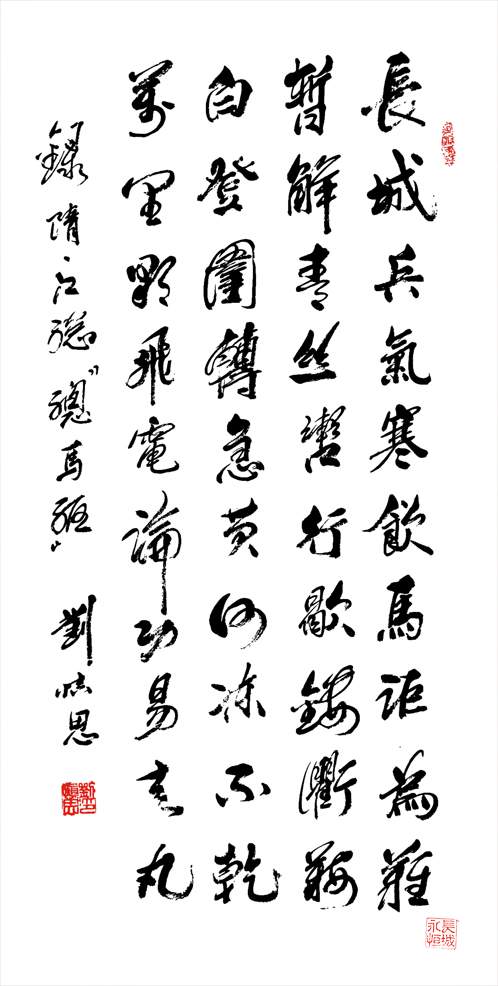 長城兵氣寒飲馬詎為難
暫解青絲轡行歇鏤衢鞍
白登圍轉急黃河凍不乾
萬里朝飛電論功易走丸
錄隋·江總“驄馬驅” 劉思
長城永恒